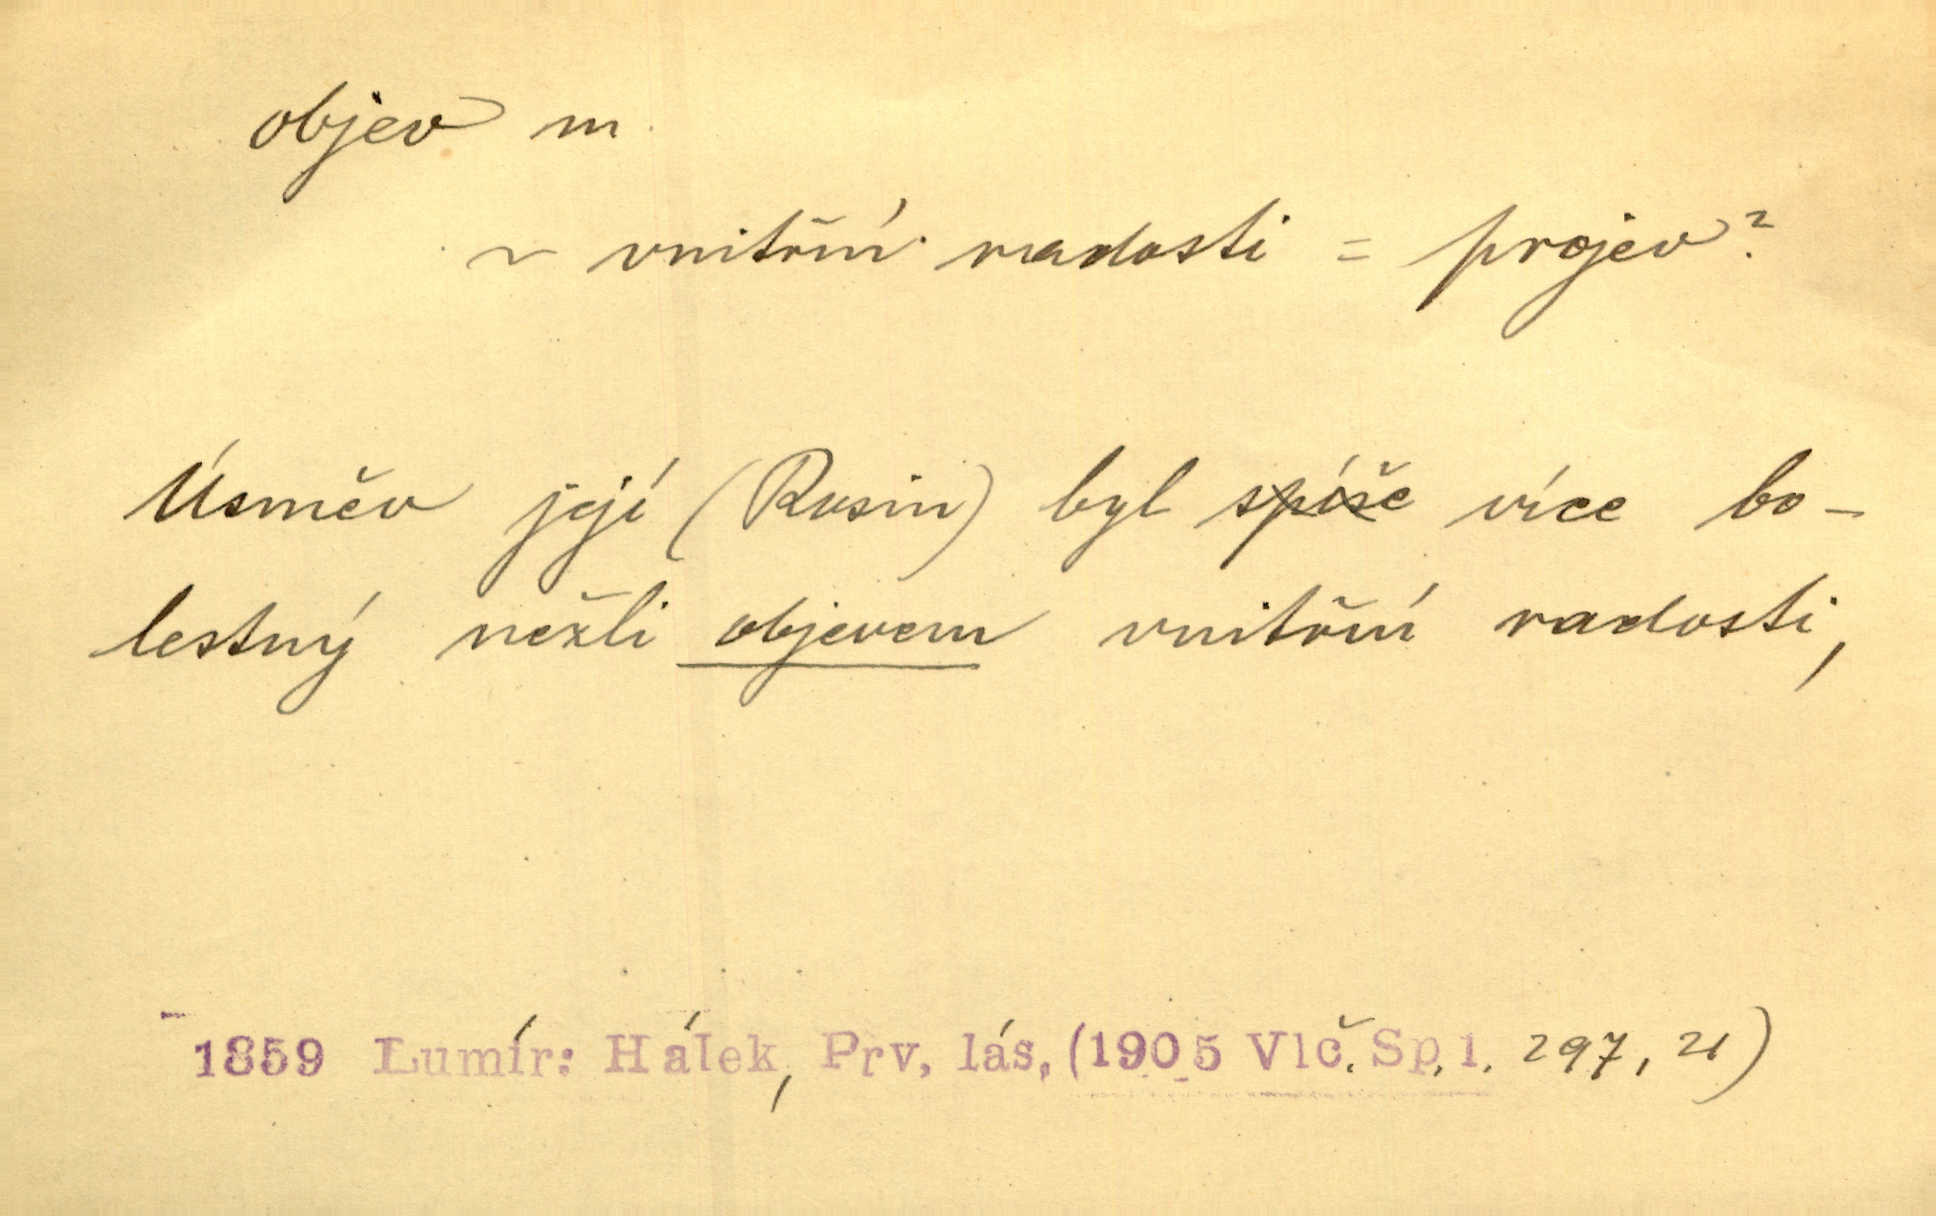 objev m.
~ vnitřní radosti = projev?
Úsměv její (Rusin) byl spíše více bo-
lestný nežli objevem vnitřní radosti,
1859 Lumír: Hálek, Prv. lás. (1905 Vlč. Sp. 1. 297, 21)